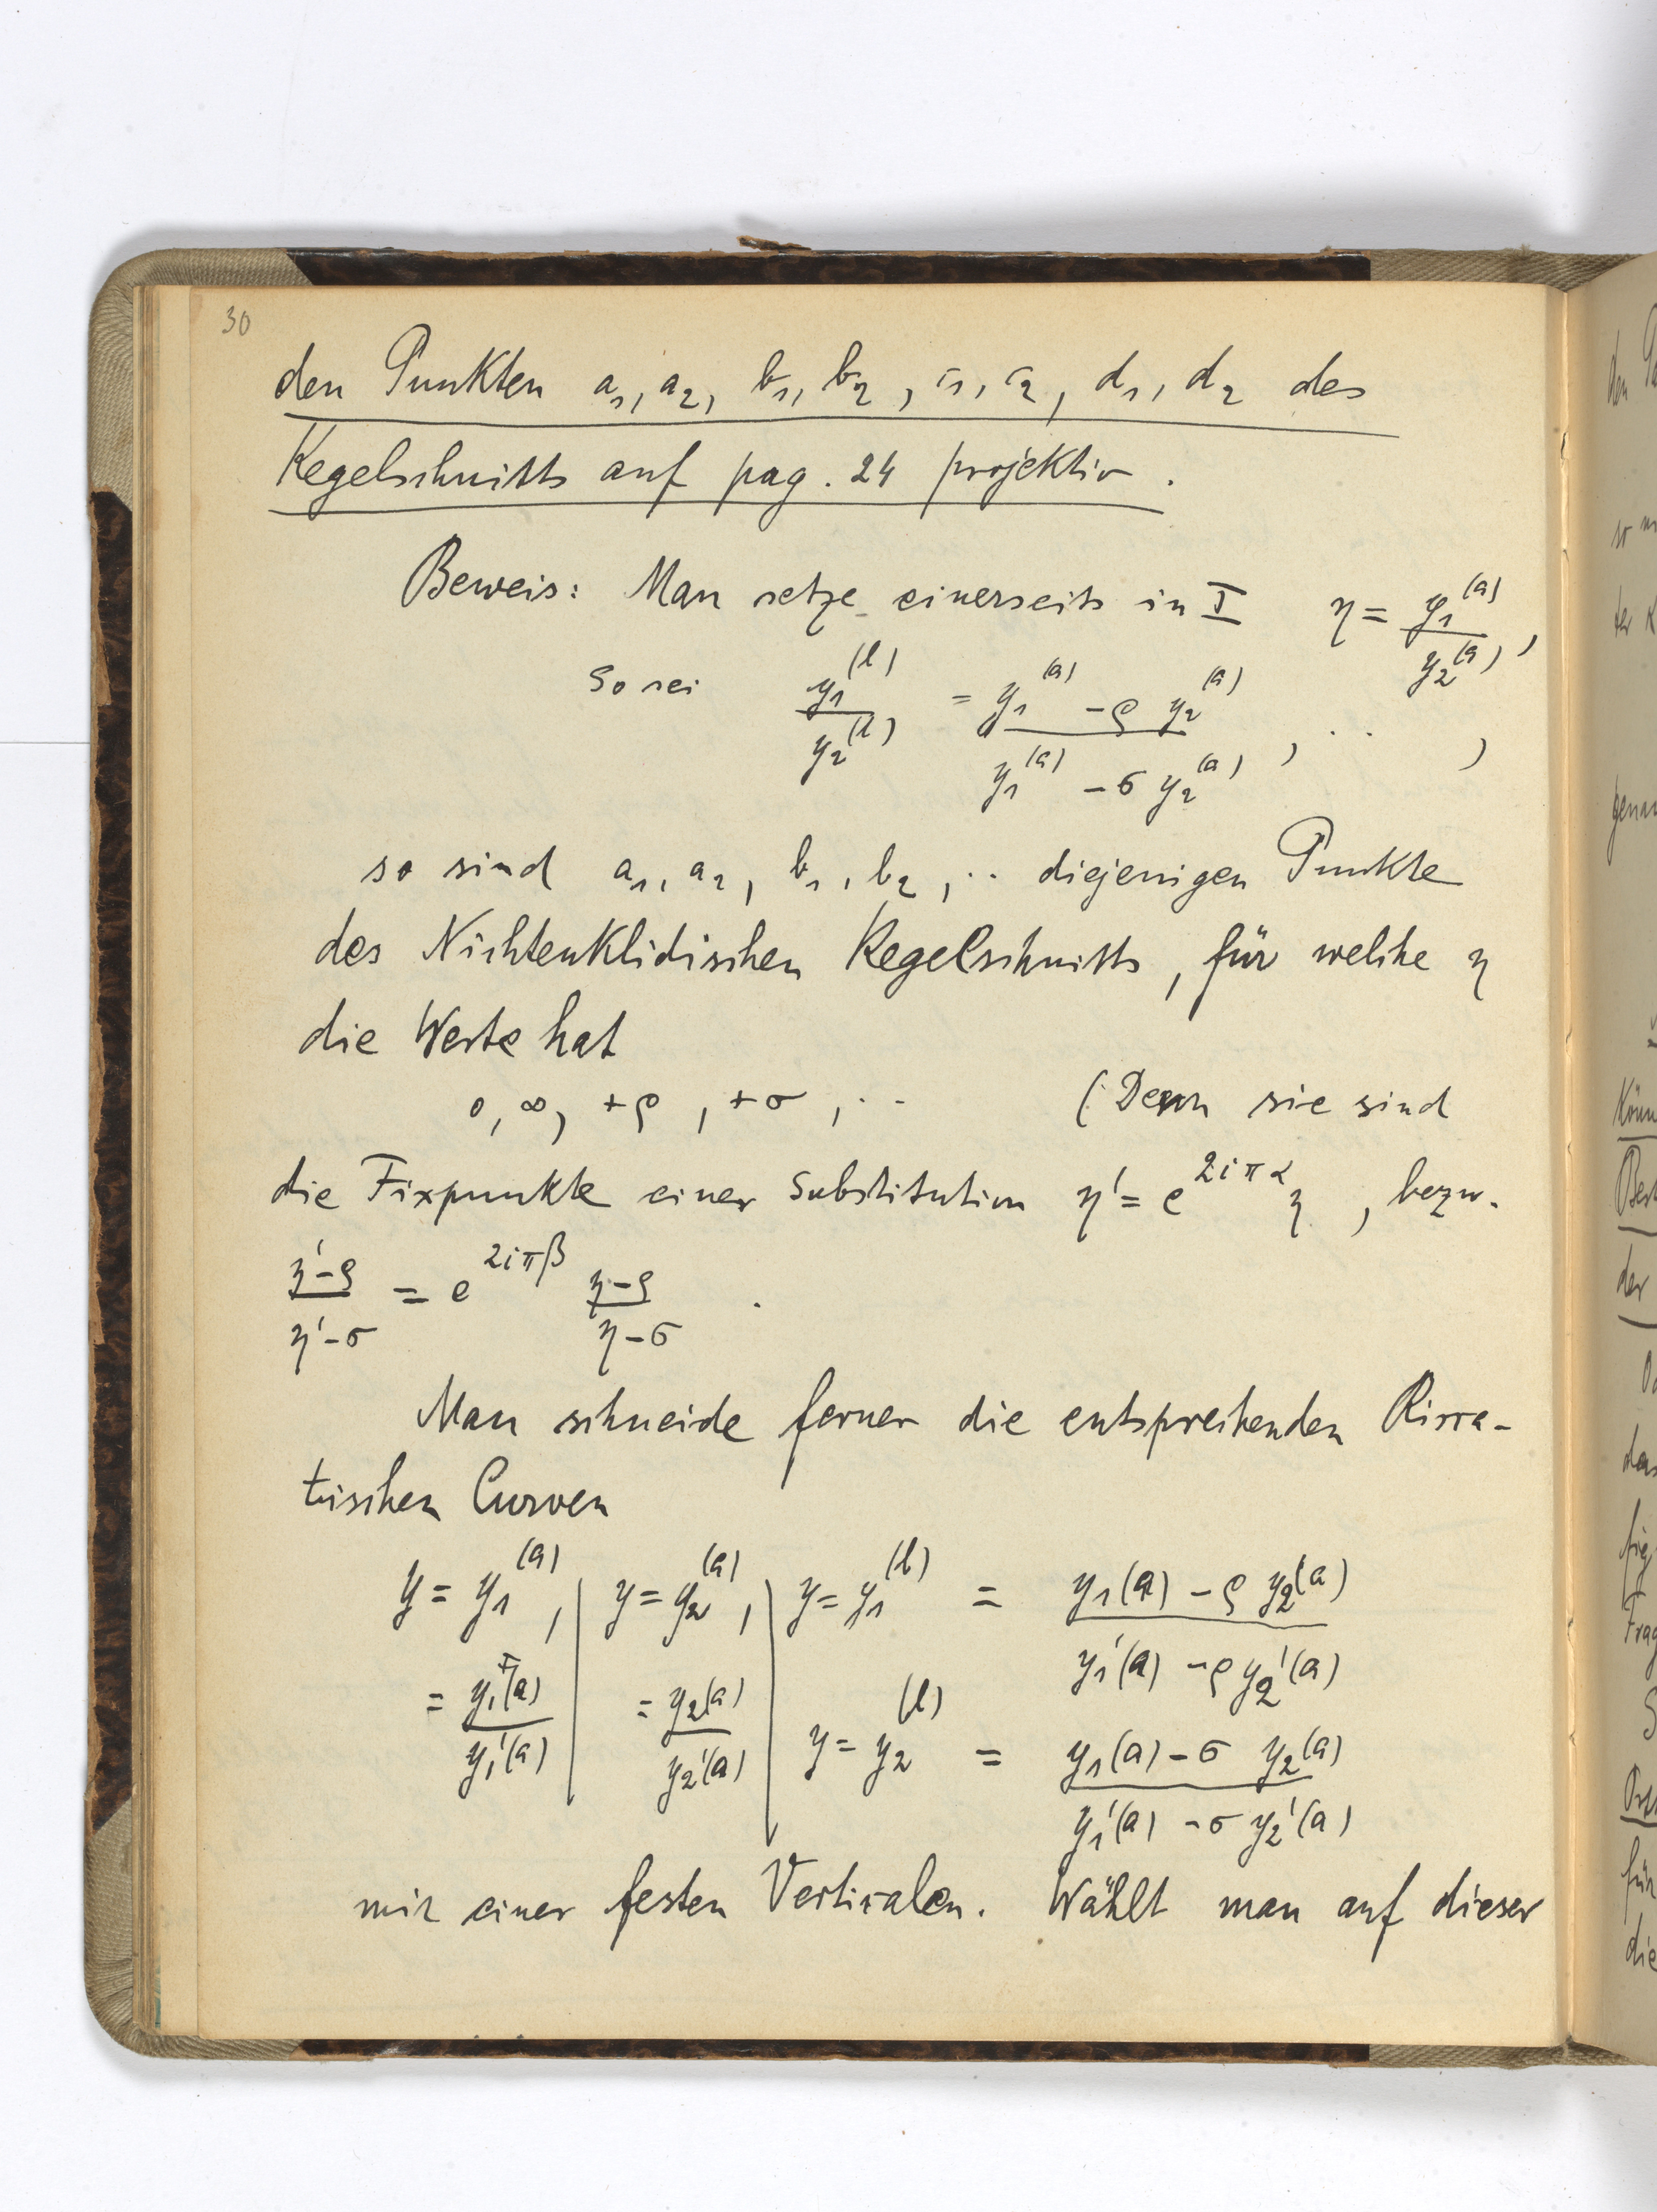 30
den Punkten a₁, a₂, b₁, b₂, c₁, c₂, d₁, d₂ des
Kegelschnitts auf pag. 24 projektiv.
Beweis: Man setze einerseits in I η = y₁^(a) / y₂^(a),
So sei y₁^(b) / y₂^(b) = (y₁^(a) − ρ y₂^(a)) / (y₁^(a) − σ y₂^(a)), .. ,
so sind a₁, a₂, b₁, b₂, .. diejenigen Punkte
des Nichteuklidischen Kegelschnitts, für welche η
die Werte hat
0, ∞, +ρ, +σ, .. (Denn sie sind
die Fixpunkte einer Substitution η' = e^(2iπα) η, bezw.
(η'−ρ) / (η'−σ) = e^(2iπβ) (η−ρ) / (η−σ) .
Man schneide ferner die entsprechenden Ricca-
tischen Curven
y = y₁^(a), | y = y₂^(a), | y = y₁^(b) = (y₁(a) − ρ y₂(a)) / (y₁'(a) − ρ y₂'(a))
= y₁(a) / y₁'(a) | = y₂(a) / y₂'(a) | y = y₂^(b) = (y₁(a) − σ y₂(a)) / (y₁'(a) − σ y₂'(a))
mit einer festen Vertikalen. Wählt man auf dieser